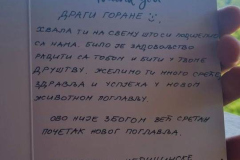 ДРАГИ ГОРАНЕ
ХВАЛА ТИ НА СВЕМУ ШТО СИ
СА НАМА. БИЛО ЈЕ ЗАДОВОЉСТВО
РАДИТИ СА ТОБОМ И БИТИ У ТВОМЕ
ДРУШТВУ. ЖЕЛИМО ТИ МНОГО СРЕЋЕ
ЗДРАВЉА И УСПЕХА У НОВОМ
ЖИВОТНОМ ПОГЛАВЉУ.
ОВО НИЈЕ ЗБОГОМ ВЕЋ СРЕТАН
ПОЧЕТАК НОВОГ ПОГЛАВЉА.